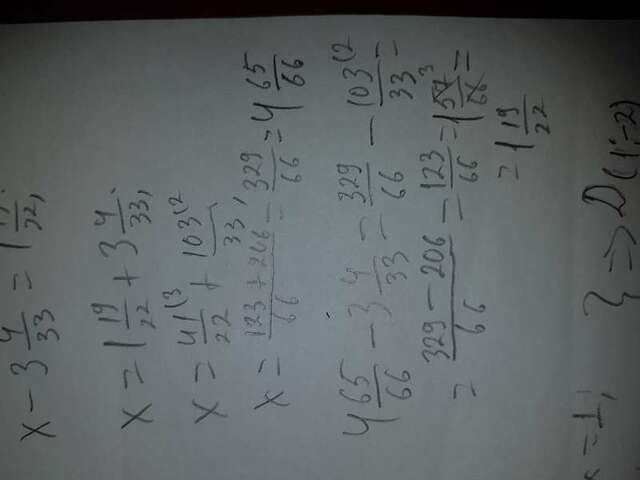 x - 3 4/33 = 1 19/22;
x = 1 19/22 + 3 4/33;
x = 41/22 (3 + 103/33 (2,
x = (123 + 206)/66 = 329/66 = 4 65/66
4 65/66 - 3 4/33 = 329/66 - 103/33 (2 =
= (329 - 206)/66 = 123/66 = 1 57/66 3 =
= 1 19/22
x = 1; } ⇒ D(1;-2)